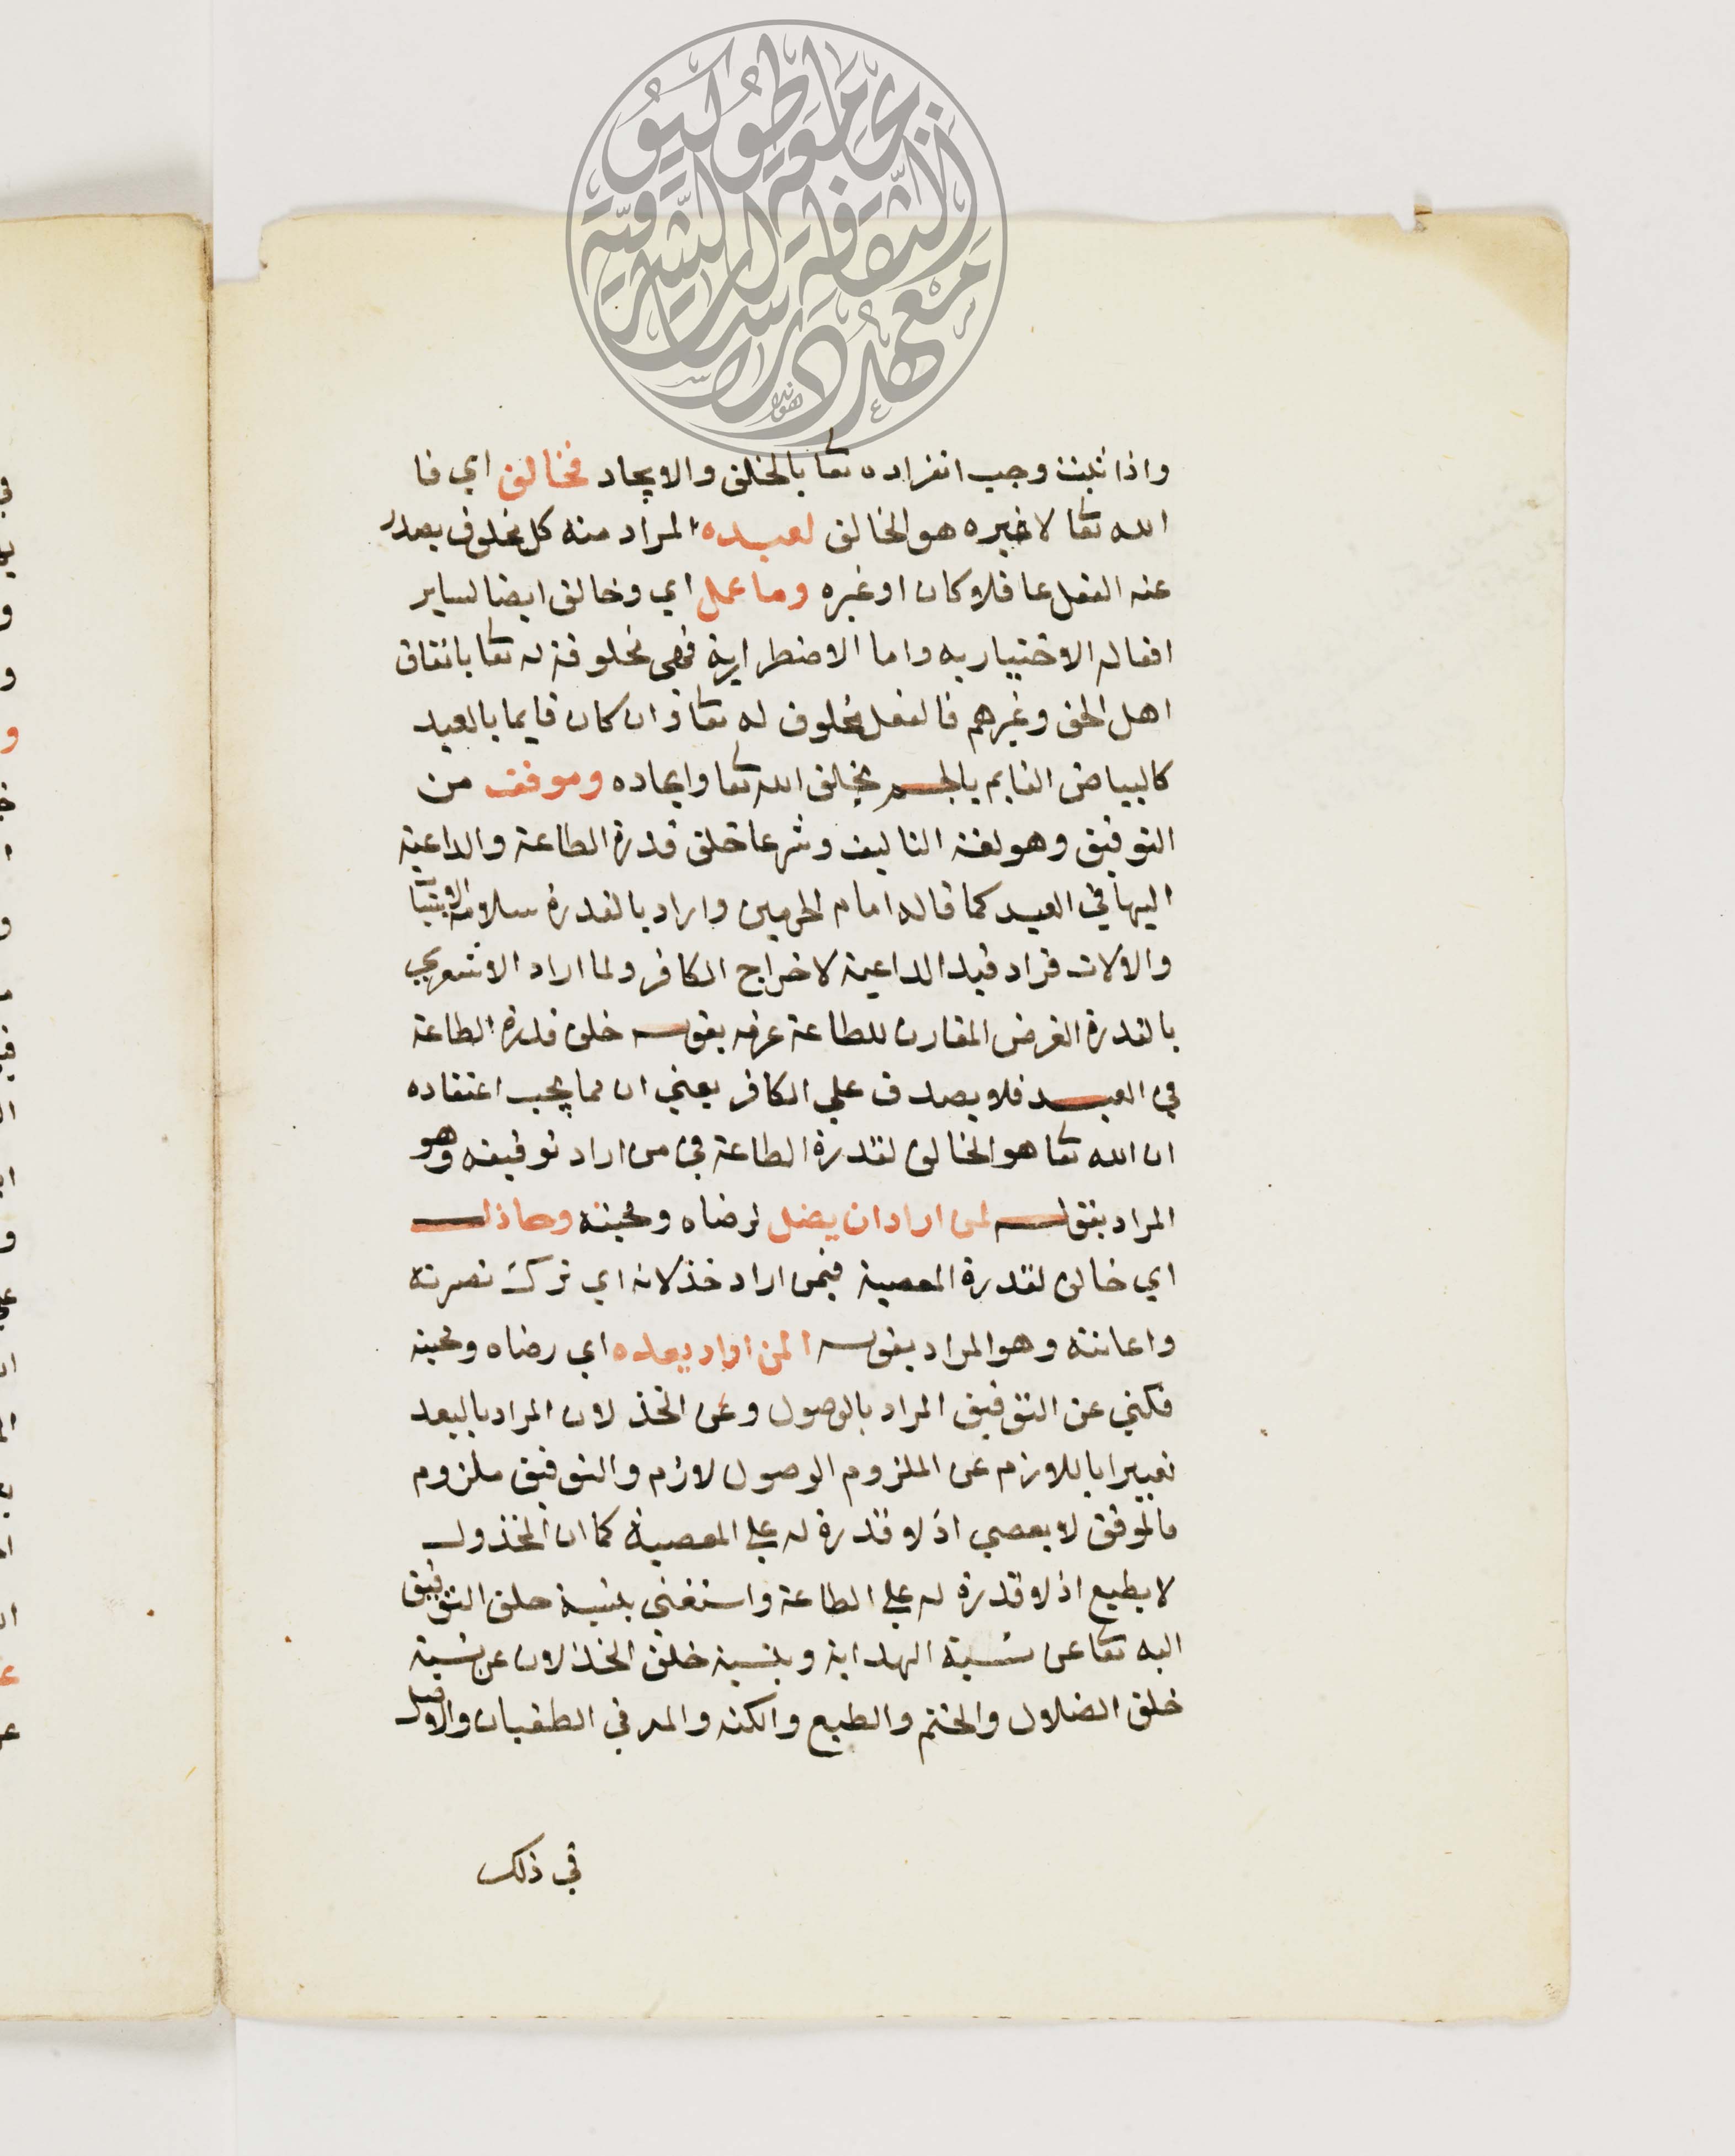 جامعة طوكيو
معهد دراسات الثقافة الشرقية
واذا ثبت وجب انفراده تعا بالخلق والايجاد فخالق اي فا
الله تعا لا غيره هو الخالق لعبده المراد منه كل مخلوق يصدر
عنه الفعل عاقلا وكان او غيره وما عمل اي وخالق ايضا لساير
افعاله الاختياريه واما الاضطرارية فهي مخلوقة له تعا باتفاق
اهل الحق وغيرهم فالفعل مخلوق له تعا وان كان قايما بالعبد
كالبياض القايم بالجسم بخلق الله تعا وايجاده وموفق من
التوفيق وهو لغة التاليف وشرعا خلق قدرة الطاعة والداعية
اليها في العبد كما قاله امام الحرمين واراد بالقدرة سلامة
والالات فزاد قيد الداعية لاخراج الكافر ولما اراد الاشعري
بالقدرة العرض المقارن للطاعة عرفه بقوله خلق قدرة الطاعة
في العبد فلا يصدق علي الكافر يعني ان مما يجب اعتقاده
ان الله تعا هو الخالق لقدرة الطاعة في من اراد توفيقه وهو
المراد بقوله لمن اراد ان يصل لرضاه ومحبته وخاذل
اي خالق لقدرة المعصية فيمن اراد خذلانه اي ترك نصرته
واعانته وهو المراد بقوله لمن اراد بعده اي رضاه ومحبته
فكني عن التوفيق المراد بالوصول وعن الخذلان المراد بالبعد
تعبيرا باللازم عن الملزوم الوصول لازم والتوفيق ملزوم
فالموفق لا يعصي اذ لا قدرة له علي المعصية كما ان المخذول
لا يطيع اذ لا قدرة له علي الطاعة واستغني بنسبة خلق التوفيق
اليه تعا عن نسبة الهداية وبنسبة خلق الخذلان عن نسبة
خلق الضلال والختم والطبع والكنه والمد في الطغيان
في ذلك